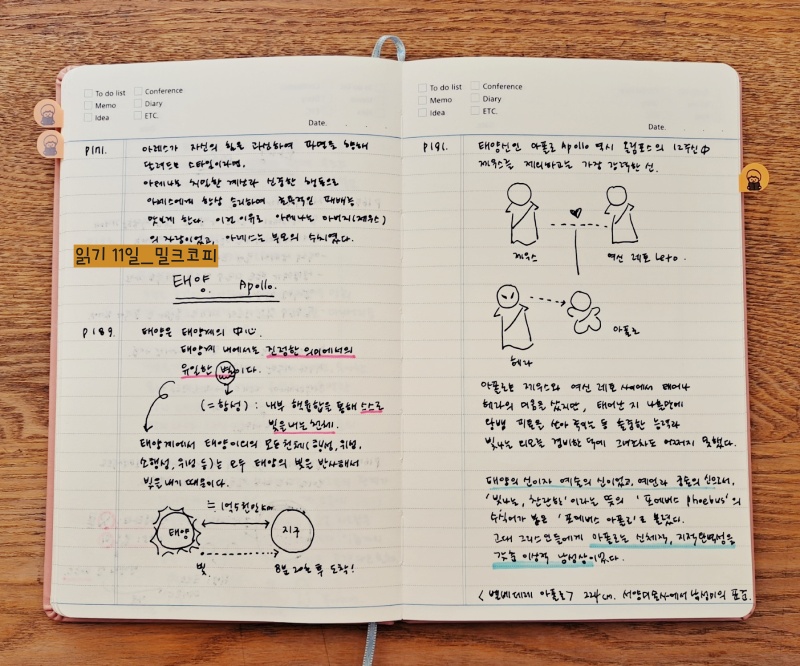 To do list Conference
Memo Diary
Idea ETC.
Date.
P171. 아레스가 자신의 힘을 과신하여 파면을 향해
달려드는 스타일이라면,
아테나는 치밀한 계산과 신중한 행동으로
아레스에게 항상 승리하여 굴욕적인 패배를
맛보게 한다. 이런 이유로 아테나는 아버지(제우스)
의 자랑이었고, 아레스는 부모의 수치였다.
읽기 11일_밀크코피
태양. Apollo.
P189. 태양은 태양계의 中心.
태양계 내에서는 진정한 의미에서의
유일한 별이다.
(=항성) : 내부 핵융합을 통해 스스로
빛을 내는 천체.
태양계에서 태양 이외의 모든 천체(행성, 위성,
소행성, 위성 등)는 모두 태양의 빛을 반사해서
빛을 내기 때문이다.
≒ 1억 5천만 km
태양 지구
빛. 8분 20초 후 도착!
To do list Conference
Memo Diary
Idea ETC.
Date.
P191. 태양신인 아폴로 Apollo 역시 올림포스의 12주신 中
제우스를 제외하고는 가장 강력한 신.
제우스 여신 레토 Leto.
헤라 아폴로
아폴로는 제우스와 여신 레토 사이에서 태어나
헤라의 미움을 샀지만, 태어난 지 나흘만에
등 출중한 능력과
빛나는 외모를 겸비한 덕에 그녀조차도 어쩌지 못했다.
태양의 신이자 예술의 신이었고, 예언과 궁술의 신으로서,
'빛나는, 찬란한' 이라는 뜻의 '포에버스 phoebus'의
수식어가 붙은 '포에버스 아폴로'로 불렸다.
고대 그리스인들에게 아폴로는 신체적, 지적 완벽성을
갖춘 이상적 남성상이었다.
<벨베데레 아폴로> 224cm. 서양미술사에서 남성미의 표준.